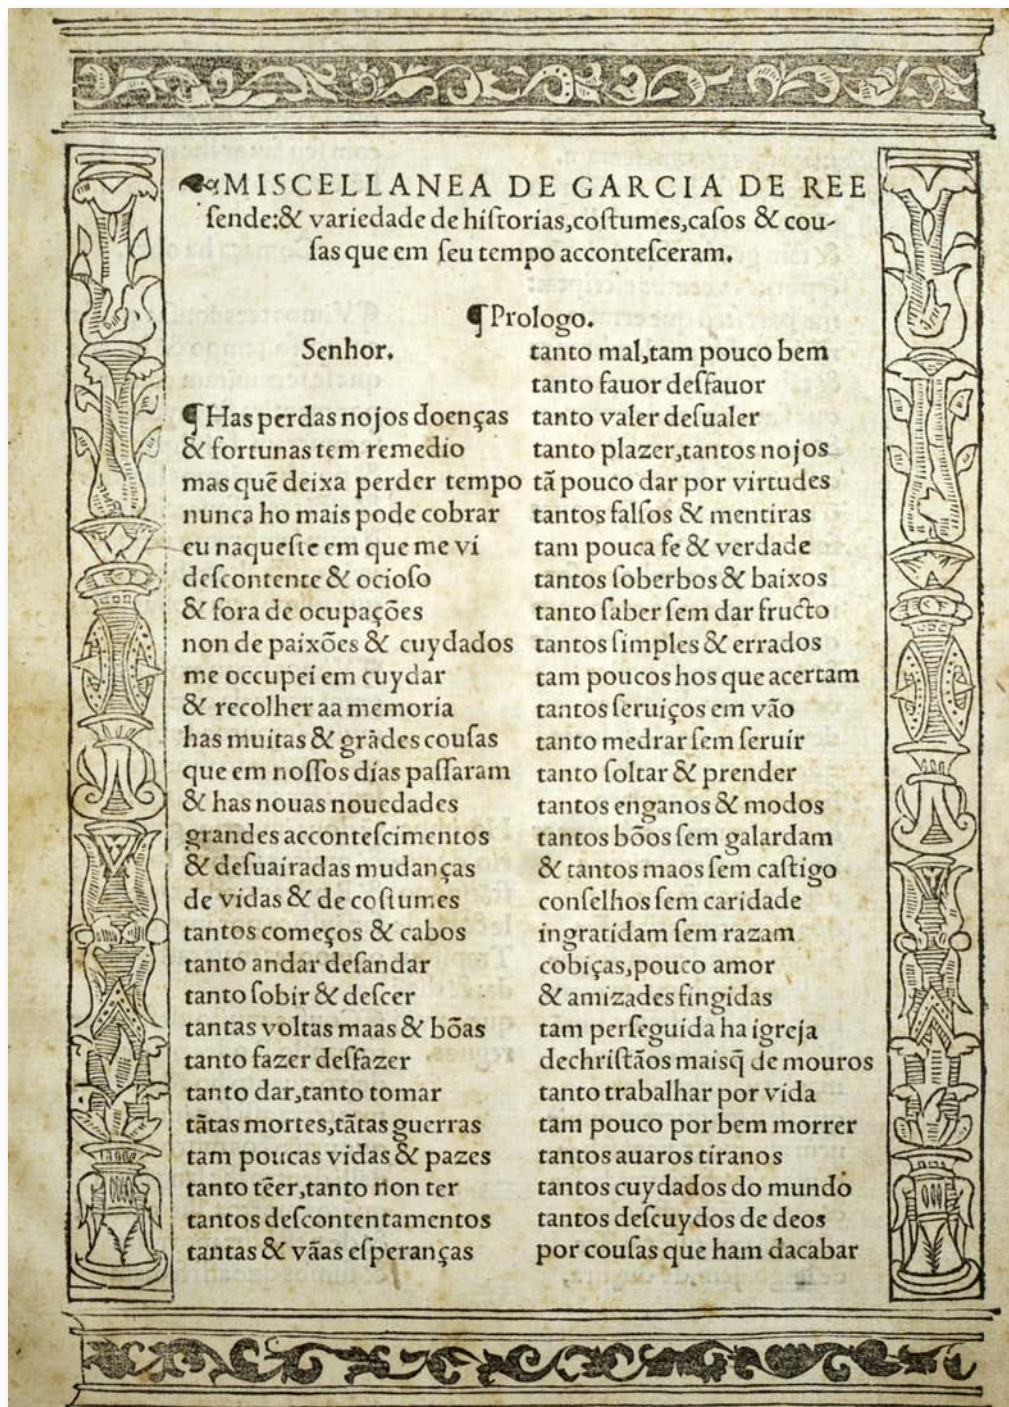 MISCELLANEA DE GARCIA DE REE
ſende:& variedade de hiſtorias,coſtumes,caſos & cou-
ſas que em ſeu tempo acconteſceram.
¶Prologo.
Senhor.
¶Has perdas nojos doenças
& fortunas tem remedio
mas quẽ deixa perder tempo
nunca ho mais pode cobrar
eu naqueſte em que me vi
deſcontente & ocioſo
& fora de ocupações
non de paixões & cuydados
me occupei em cuydar
& recolher aa memoria
has muitas & grãdes couſas
que em noſſos dias paſſaram
& has nouas nouedades
grandes acconteſcimentos
& deſuairadas mudanças
de vidas & de coſtumes
tantos começos & cabos
tanto andar deſandar
tanto ſobir & deſcer
tantas voltas maas & bõas
tanto fazer desfazer
tanto dar,tanto tomar
tãtas mortes,tãtas guerras
tam poucas vidas & pazes
tanto tẽer,tanto non ter
tantos deſcontentamentos
tantas & vãas eſperanças
tanto mal,tam pouco bem
tanto fauor desfauor
tanto valer deſualer
tanto plazer,tantos nojos
tã pouco dar por virtudes
tantos falſos & mentiras
tam pouca fe & verdade
tantos ſoberbos & baixos
tanto ſaber ſem dar fructo
tantos ſimples & errados
tam poucos hos que acertam
tantos ſeruiços em vão
tanto medrar ſem ſeruir
tanto ſoltar & prender
tantos enganos & modos
tantos bõos ſem galardam
& tantos maos ſem caſtigo
conſelhos ſem caridade
ingratidam ſem razam
cobiças,pouco amor
& amizades fingidas
tam perſeguida ha igreja
dechriſtãos maisq̃ de mouros
tanto trabalhar por vida
tam pouco por bem morrer
tantos auaros tiranos
tantos cuydados do mundo
tantos deſcuydos de deos
por couſas que ham dacabar